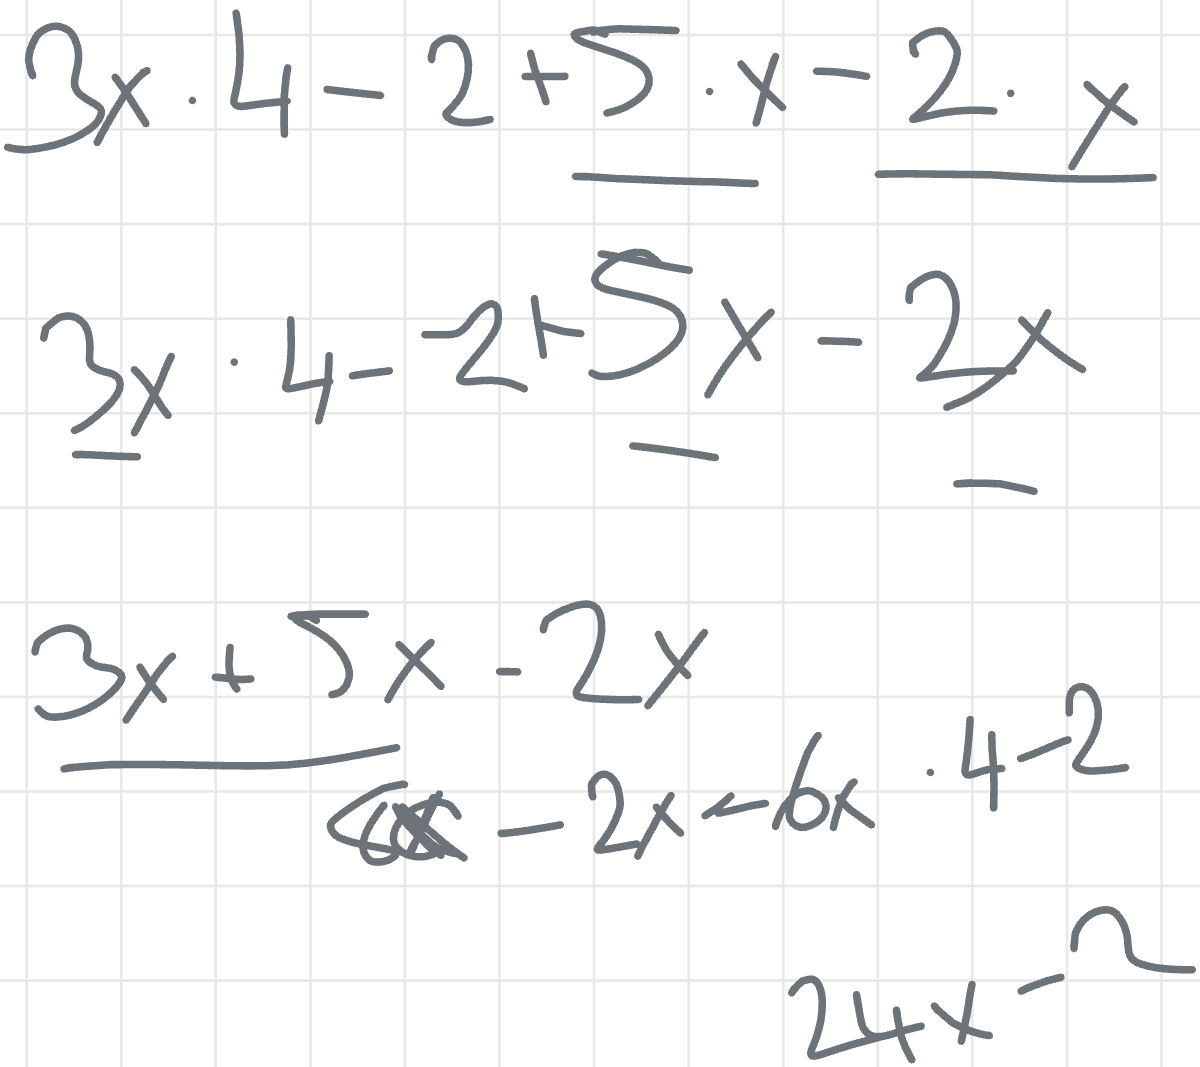 3x · 4 - 2 + 5 · x - 2 · x
3x · 4 - 2 + 5x - 2x
3x + 5x - 2x
- 2x - 6x · 4 - 2
24x - 2